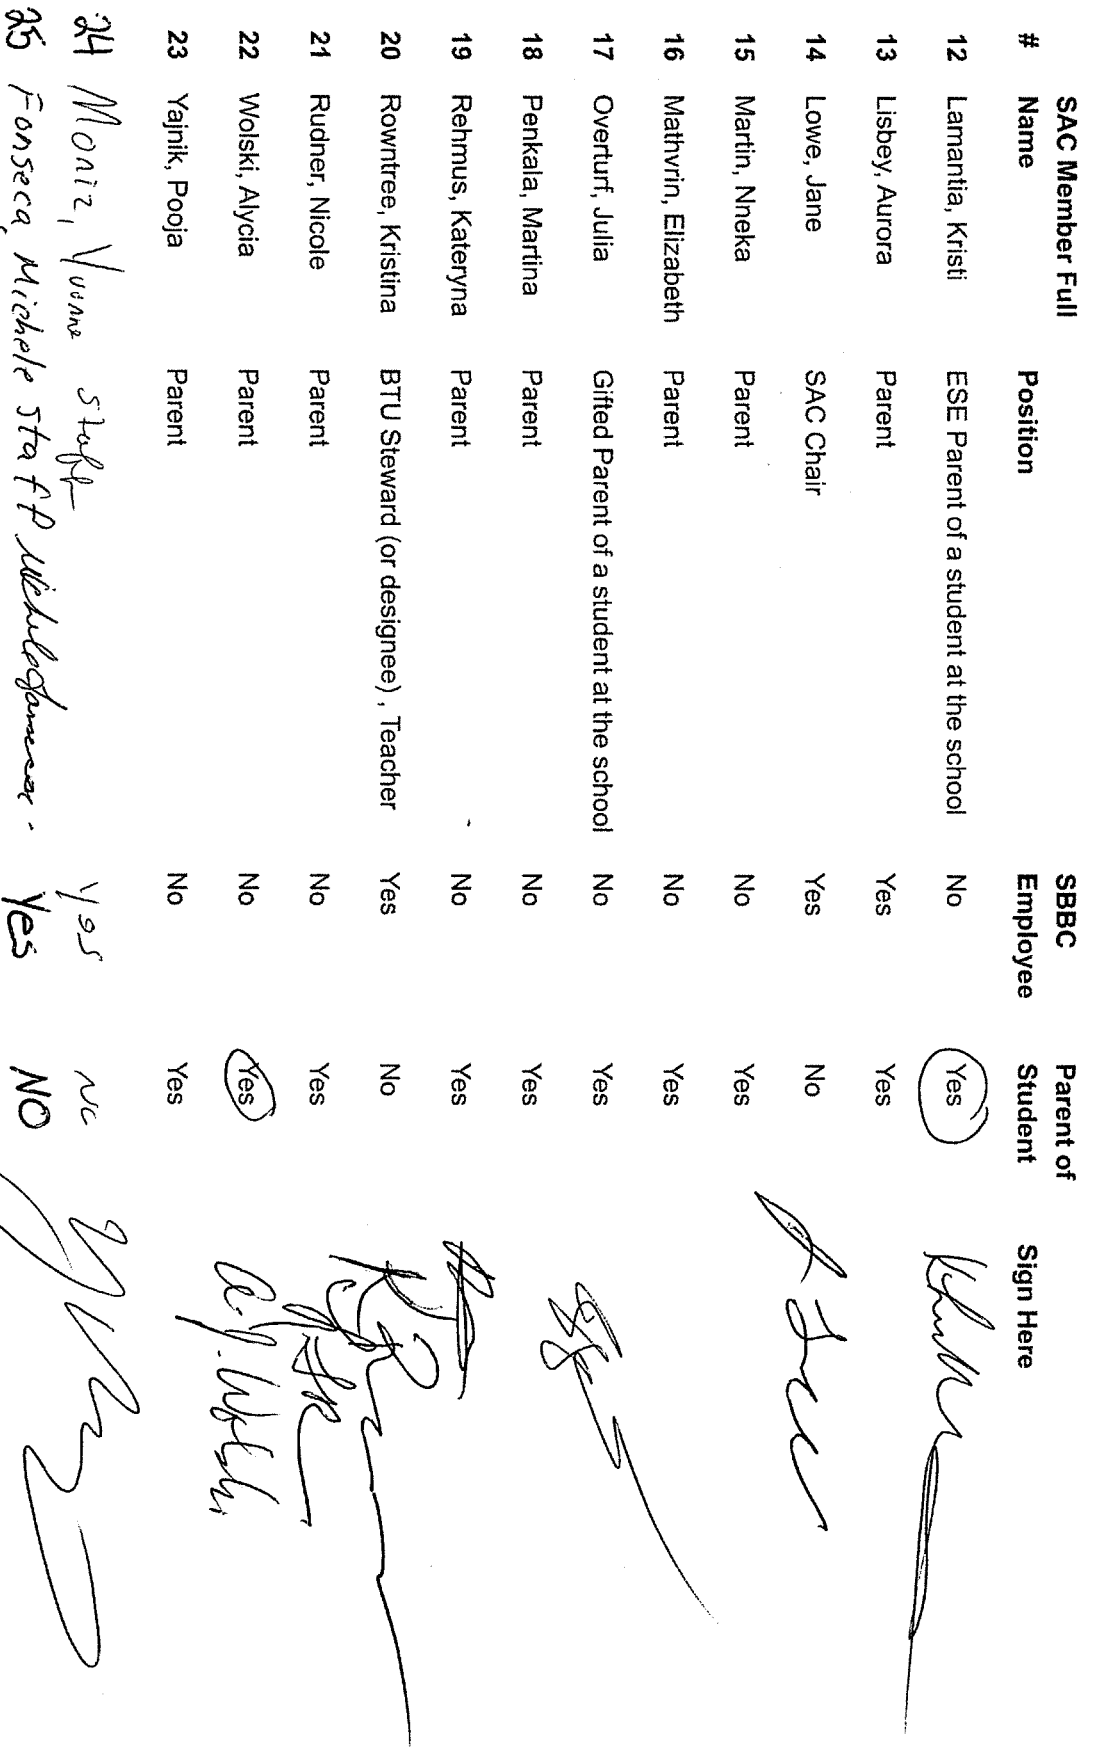 SAC Member Full SBBC Parent of
# Name Position Employee Student Sign Here
12 Lamantia, Kristi ESE Parent of a student at the school No Yes
13 Lisbey, Aurora Parent Yes Yes
14 Lowe, Jane SAC Chair Yes No
15 Martin, Nneka Parent No Yes
16 Mathvrin, Elizabeth Parent No Yes
17 Overturf, Julia Gifted Parent of a student at the school No Yes
18 Penkala, Martina Parent No Yes
19 Rehmus, Kateryna Parent No Yes
20 Rowntree, Kristina BTU Steward (or designee) , Teacher Yes No
21 Rudner, Nicole Parent No Yes
22 Wolski, Alycia Parent No Yes
23 Yajnik, Pooja Parent No Yes
24 Moniz, Yvonne Staff Yes No
25 Fonseca, Michele Staff Yes NO